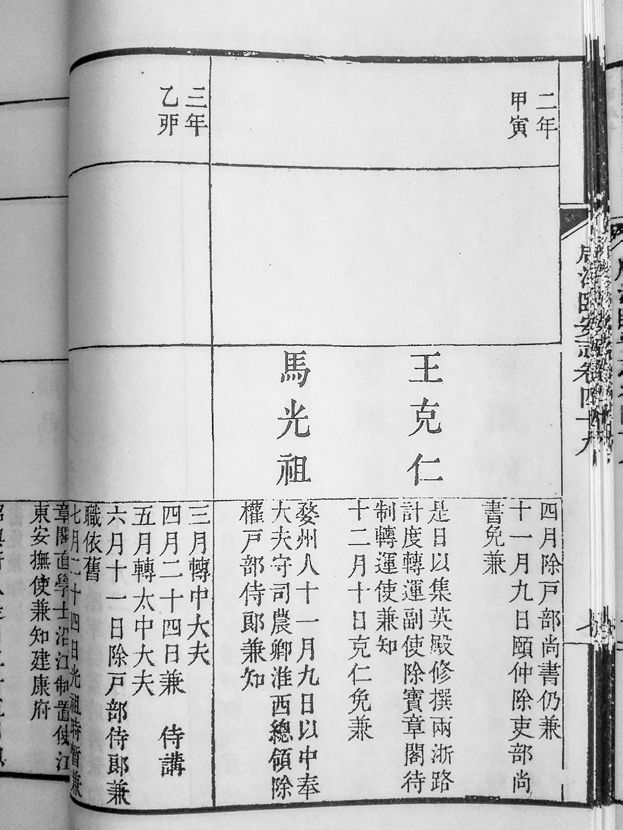 咸淳臨安志卷四十九
二年
甲寅
四月除戸部尚書仍兼
十一月九日頤仲除吏部尚
書免兼
王克仁
是日以集英殿修撰兩浙路
計度轉運副使除寶章閣待
制轉運使兼知
十二月十日克仁免兼
馬光祖
婺州人十一月九日以中奉
大夫守司農卿淮西總領除
權戸部侍郎兼知
三年
乙卯
三月轉中大夫
四月二十四日兼 侍講
五月轉太中大夫
六月十一日除戸部侍郎兼
職依舊
七月二十四日光祖時暫兼
章閣直學士沿江制置使江
東安撫使兼知建康府